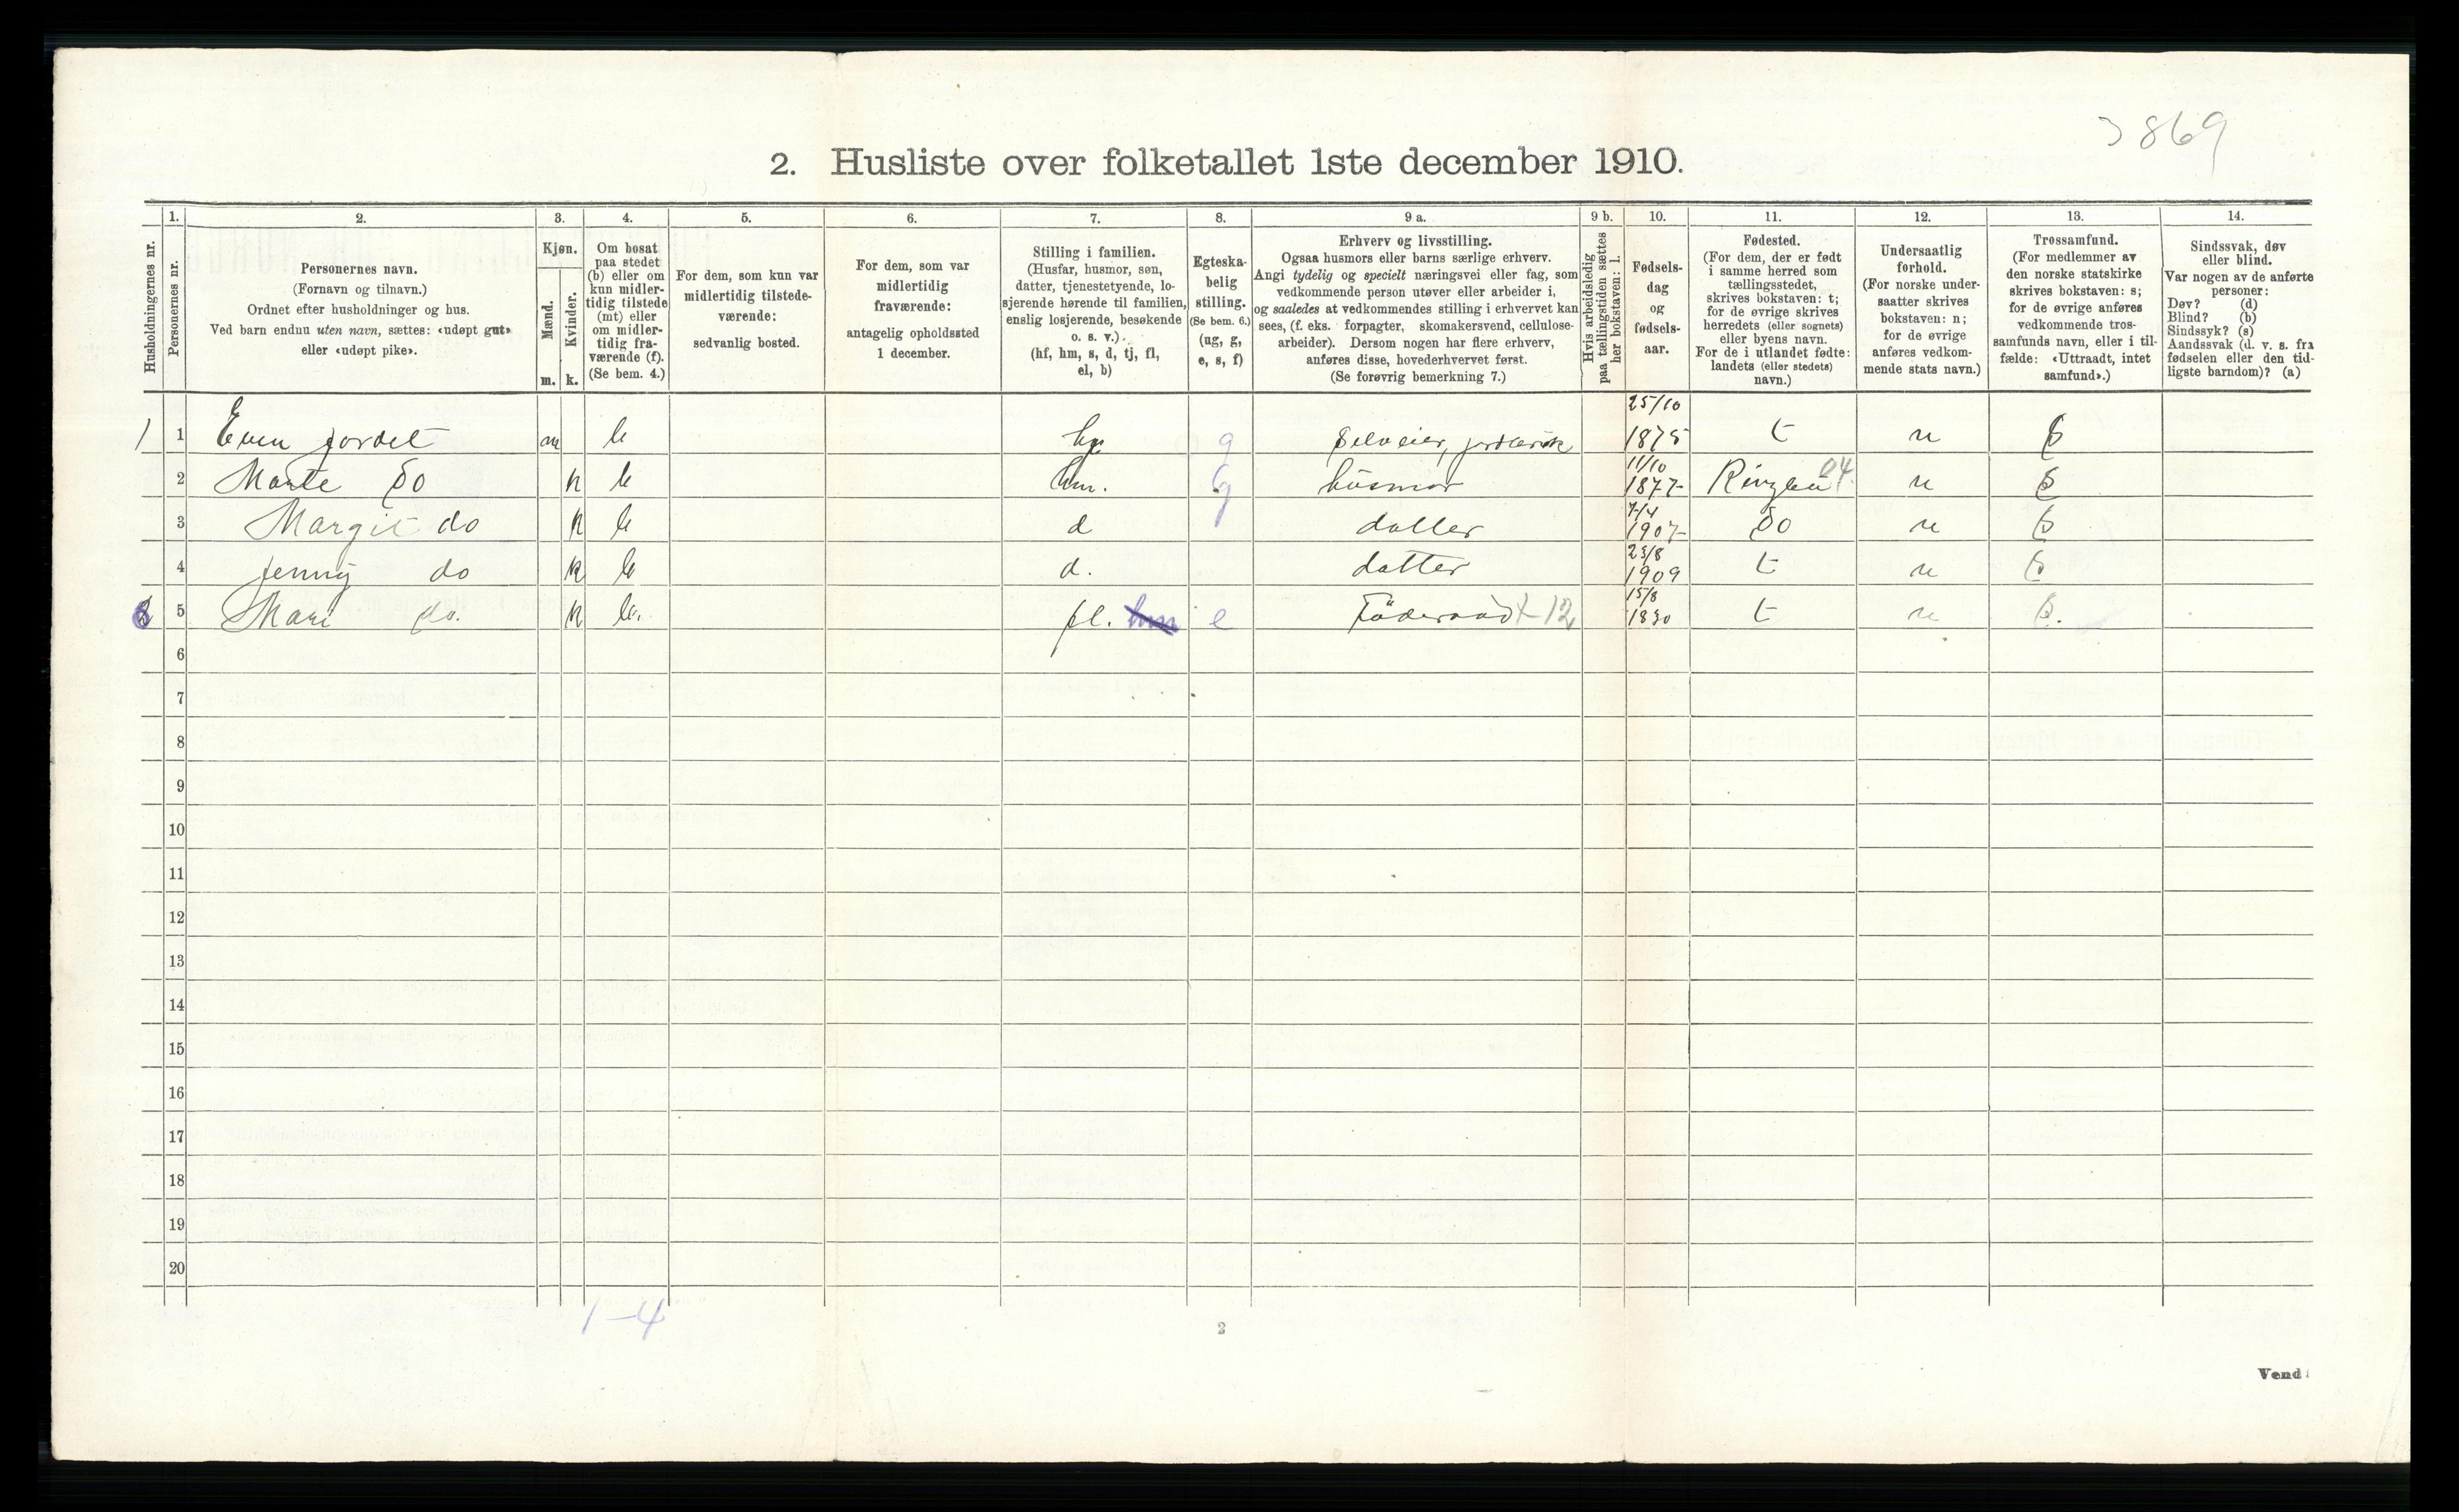 3869
2. Husliste over folketallet 1ste december 1910.
Husholdningernes nr.
1.
Personernes nr.
2.
Personernes navn.
(Fornavn og tilnavn.)
Ordnet efter husholdninger og hus.
Ved barn endnu uten navn, sættes: «udøpt gut»
eller «udøpt pike».
3.
Kjøn.
Mænd.
Kvinder.
m. k.
4.
Om bosat
paa stedet
(b) eller om
kun midler-
tidig tilstede
(mt) eller
om midler-
tidig fra-
værende (f).
(Se bem. 4.)
5.
For dem, som kun var
midlertidig tilstede-
værende:
sedvanlig bosted.
6.
For dem, som var
midlertidig
fraværende:
antagelig opholdssted
1 december.
7.
Stilling i familien.
(Husfar, husmor, søn,
datter, tjenestetyende, lo-
sjerende hørende til familien,
enslig losjerende, besøkende
o. s. v.)
(hf, hm, s, d, tj, fl,
el, b)
8.
Egteska-
belig
stilling.
(Se bem. 6.)
(ug, g,
e, s, f)
9 a.
Erhverv og livsstilling.
Ogsaa husmors eller barns særlige erhverv.
Angi tydelig og specielt næringsvei eller fag, som
vedkommende person utøver eller arbeider i,
og saaledes at vedkommendes stilling i erhvervet kan
sees, (f. eks. forpagter, skomakersvend, cellulose-
arbeider). Dersom nogen har flere erhverv,
anføres disse, hovederhvervet først.
(Se forøvrig bemerkning 7.)
9 b.
Hvis arbeidsledig
paa tællingstiden sættes
her bokstaven: l.
10.
Fødsels-
dag
og
fødsels-
aar.
11.
Fødested.
(For dem, der er født
i samme herred som
tællingsstedet,
skrives bokstaven: t;
for de øvrige skrives
herredets (eller sognets)
eller byens navn.
For de i utlandet fødte:
landets (eller stedets)
navn.)
12.
Undersaatlig
forhold.
(For norske under-
saatter skrives
bokstaven: n;
for de øvrige
anføres vedkom-
mende stats navn.)
13.
Trossamfund.
(For medlemmer av
den norske statskirke
skrives bokstaven: s;
for de øvrige anføres
vedkommende tros-
samfunds navn, eller i til-
fælde: «Uttraadt, intet
samfund».)
14.
Sindssvak, døv
eller blind.
Var nogen av de anførte
personer:
Døv? (d)
Blind? (b)
Sindssyk? (s)
Aandssvak (d. v. s. fra
fødselen eller den tid-
ligste barndom)? (a)
1 1 Even Jordet m b hf g Selveier, 25/10 1875 t n s
2 Marte do k b hm. g husmor 11/10 1877 Ringbu 04. n s
3 Margit do k b d datter 7/4 1907 do n s
4 Jenny do k b d. datter 23/8 1909 t n s
2 5 Mari do. k b. fl. hm e Föderaad +12 15/8 1830 t n s.
6
7
8
9
10
11
12
13
14
15
16
17
18
19
20
1-4
2
Vend!